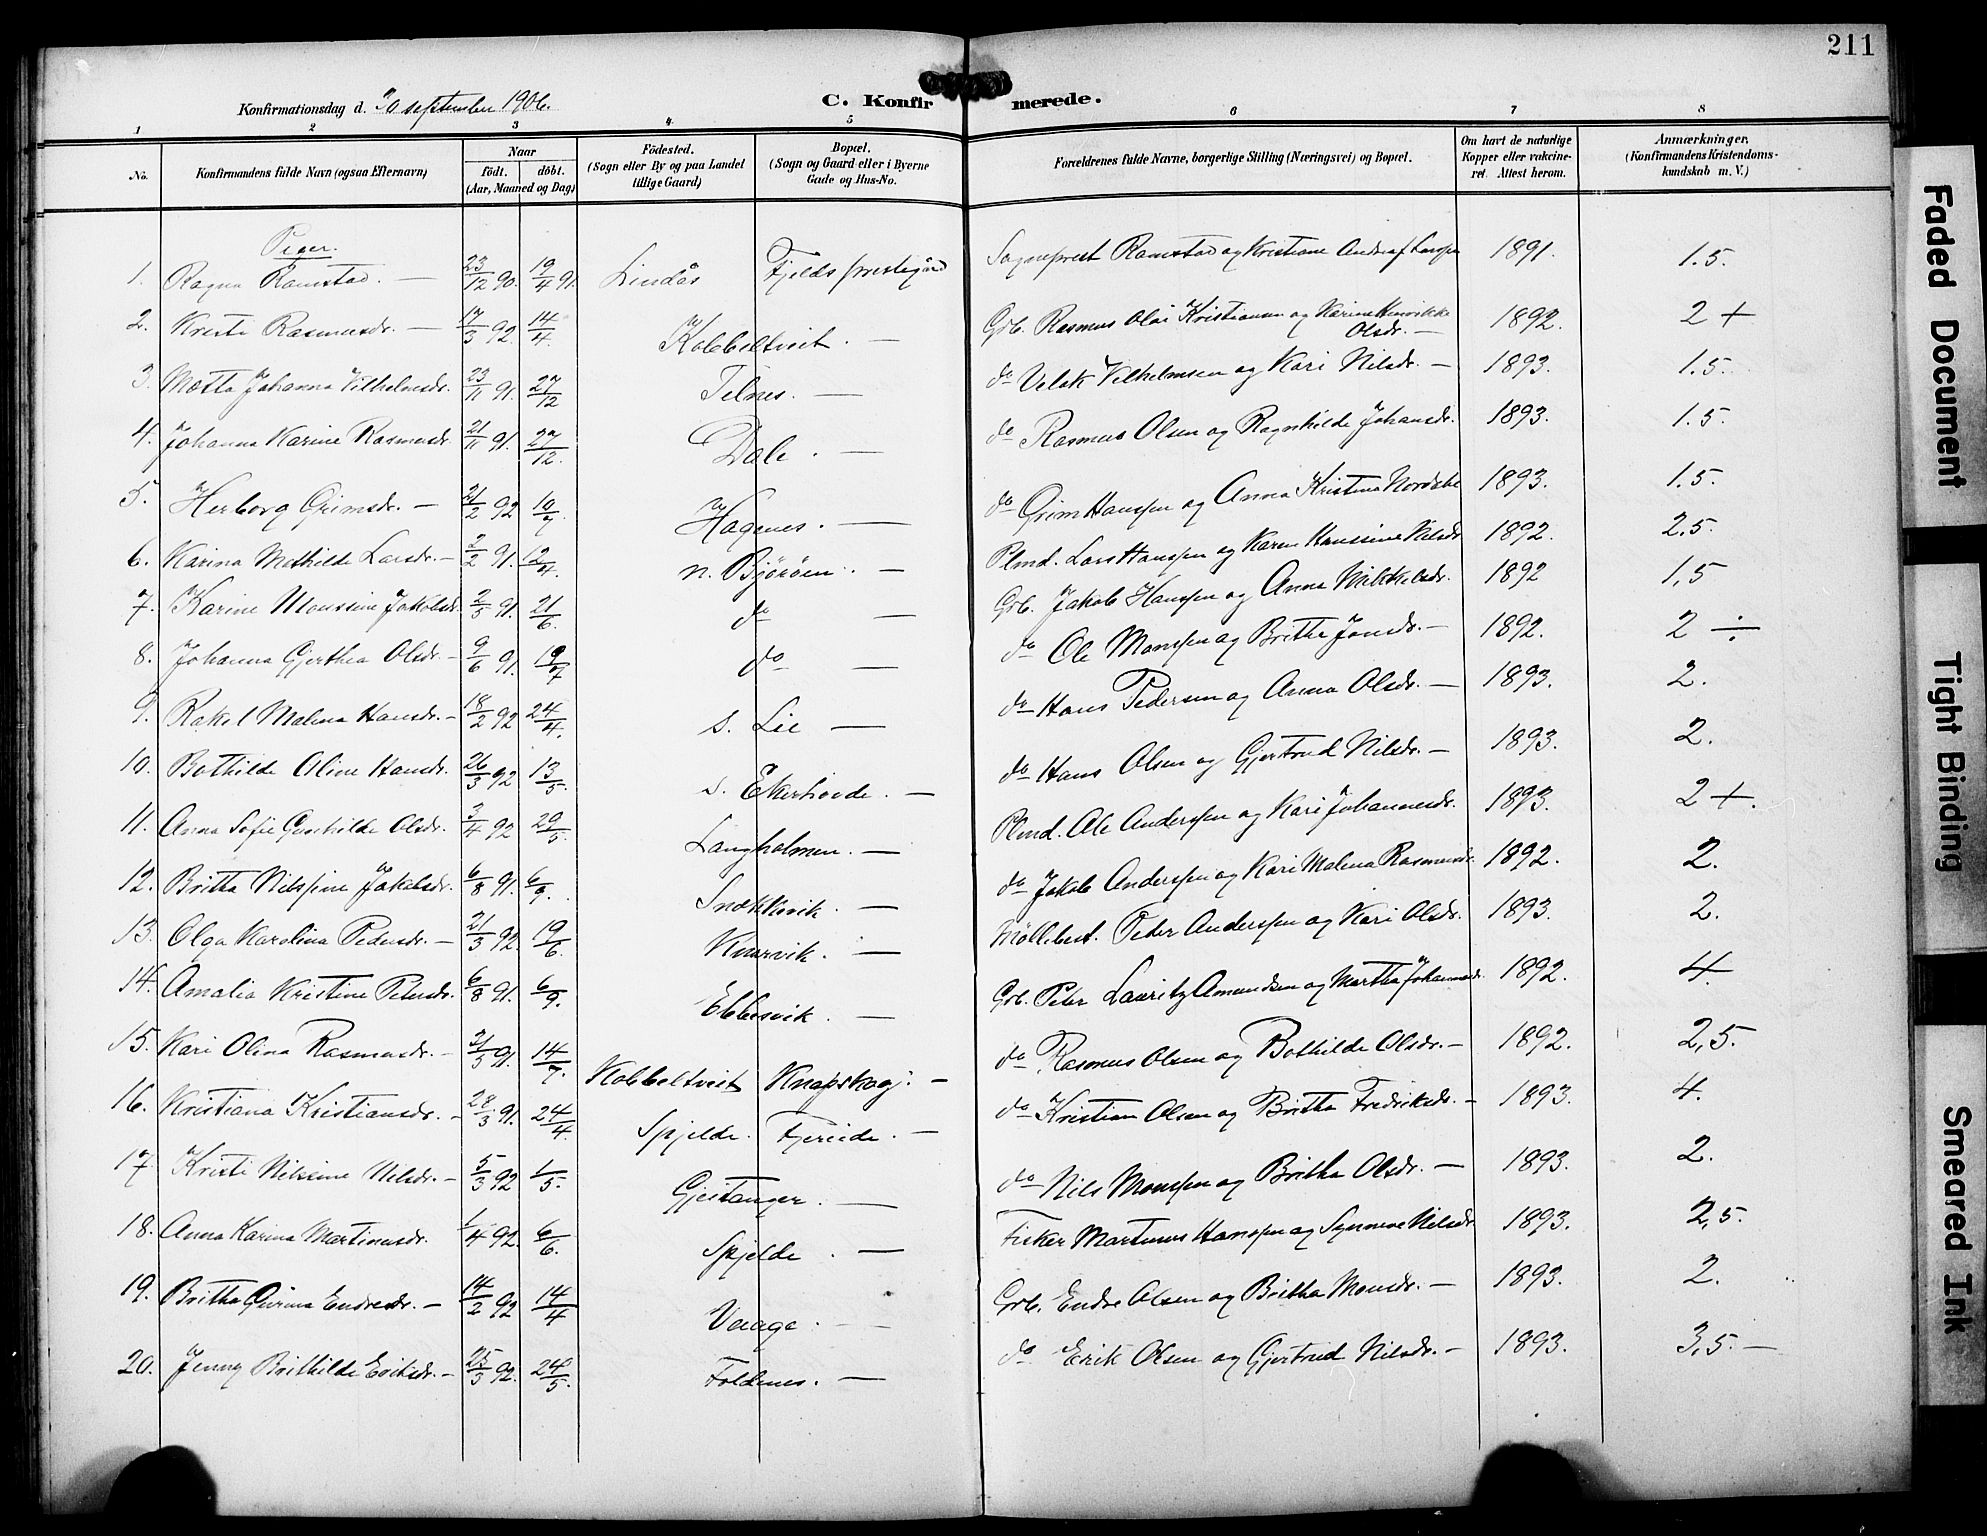 211
Konfirmationsdag d. 30 september 1906.
C. Konfirmerede.
1 2 3 4 5 6 7 8
No. Konfirmandens fulde Navn (ogsaa Efternavn) Naar födt. döbt. (Aar, Maaned og Dag) Födested. (Sogn eller By og paa Landet tillige Gaard) Bopæl. (Sogn og Gaard eller i Byerne Gade og Hus-No. Forældrenes fulde Navne, borgerlige Stilling (Næringsvei) og Bopæl. Om havt de naturlige Kopper eller vakcineret. Attest herom. Anmærkninger. (Konfirmandens Kristendomskundskab m. V.)
Piger.
1. Ragna Ramstad. — 23/12 90. 19/4 91. Lindås Fjelds prestegård Sogneprest Ramstad og Kristiane 1891. 1.5.
2. Kristi Rasmusdr. — 17/3 92. 14/4. Kobbeltveit. — Grb. Rasmus Olai Kristiansen og Karina Henrikke Olsdr. — 1892. 2 +
3. Mætta Johanna Vilhelmsdr. 23/11 91. 27/12 Telnes. — do Velak Vilhelmsen og Kari Nilsdr. — 1893. 1.5.
4. Johanna Karine Rasmusdr. 21/11 91. 27/12. Dale. — do Rasmus Olsen og Ragnhilde Johansdr. 1893. 1.5.
5. Herborg Grimsdr. — 21/2 92 10/7. Hagenes. — do Grim Hanssen og Anna Kristina Nordahl 1893. 1.5.
6. Karina Mathilde Larsdr. — 2/2 91. 12/4. n. Björöen. — Plmd. Lars Hanssen og Karen Hanssine Nilsdr 1892. 2.5.
7. Karine Monssine Jakobsdr. 2/5 91. 21/6. do — Grb. Jakob Hanssen og Anna Mikkelsdr. 1892 1,5
8. Johanna Gjerthea Olsdr. — 9/6 91. 19/7 do — do Ole Monssen og Brithe Jonsdr. — 1892. 2 ÷
9. Rakel Malena Hansdr. — 18/2 92 24/4. s. Lie — do Hans Pedersen og Anna Olsdr. — 1893. 2.
10. Bothilde Oline Hansdr. 26/3 92 13/5. s. Ekerhovde. — do Hans Olsen og Gjertrud Nilsdr. — 1893. 2.
11. Anna Sofie Gunhilde Olsdr. 3/4 92 29/5. Langholmen. — Plmd. Ole Anderssen og Kari Johannesdr. 1893. 2 +.
12. Britha Nilssine Jakobsdr. 6/8 91. 6/9. Snækkevik. — do Jakob Anderssen og Kari Malena Rasmusdr. 1892. 2.
13. Olga Karolina Pedersdr. — 21/3 92. 19/6. Knarvik. — Möllebest. Peter Anderssen og Kari Olsdr. 1893. 2.
14. Amalia Kristine Petersdr. 6/8 91. 6/9. Ebbesvik. — Grb. Peter Lauritz Amundsen og Martha Johannesdr. 1892. 4.
15. Kari Olina Rasmusdr. — 31/5 91. 14/7. Kobbeltveit Knapskog. — do Rasmus Olsen og Bothilde Olsdr. — 1892. 2,5.
16. Kristiana Kristiansdr. — 28/3 91. 24/4. Spjelde. Fjereide. — do Kristian Olsen og Britha Fredriksdr. — 1893. 4.
17. Kristi Nilssine Nilsdr. — 5/3 92 1/5. Gjeitanger. — do Nils Monssen og Britha Olsdr. — 1893. 2.
18. Anna Karina Martinusdr. 1/4 92. 6/6. Spjelde. — Fisker Martinus Hanssen og Synneve Nilsdr 1893. 2,5.
19. Britha Gurina Endresdr. — 14/2 92 14/4 Vaage. — Grb. Endre Olsen og Britha Monsdr. — 1893. 2.
20. Jenny Brithilde Eriksdr. — 25/3 92. 24/5. Foldenes. — do Erik Olsen og Gjertrud Nilsdr. — 1893. 3,5. —
Faded Document
Tight Binding
Smeared Ink